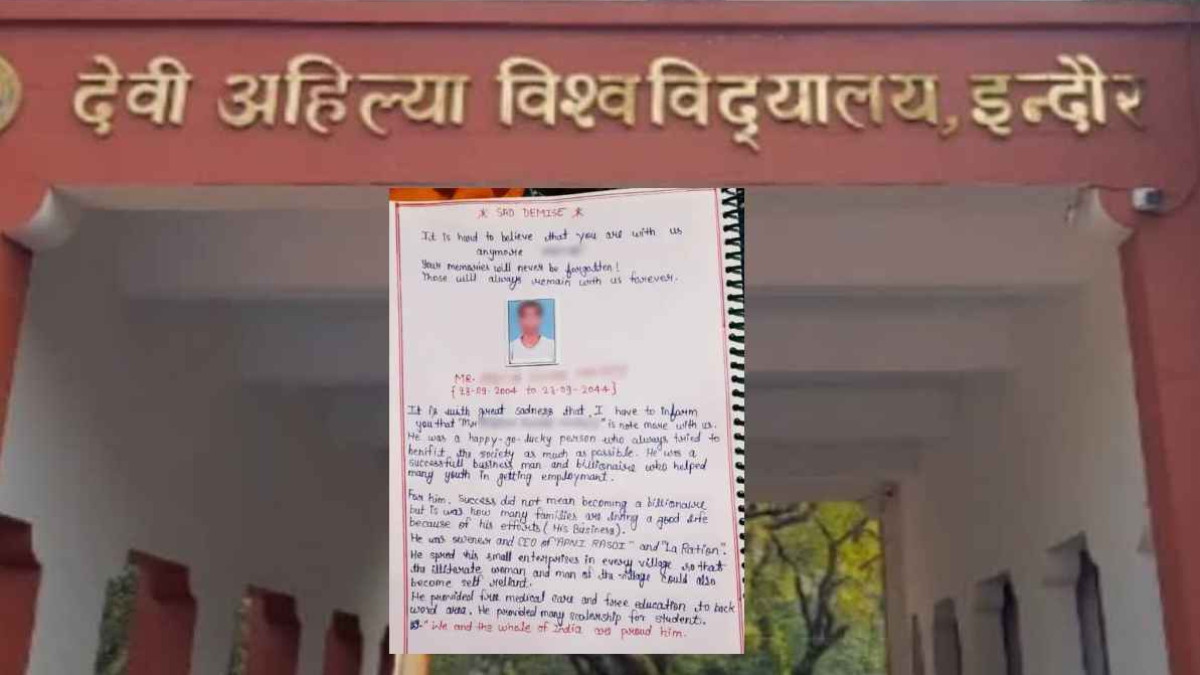 देवी अहिल्या विश्वविद्यालय, इन्दौर
✶ SAD DEMISE ✶
It is hard to believe that you are with us
anymore
Your memories will never be forgotten!
Those will always remain with us forever.
MR.
{23-09-2004 to 23-09-2044}
It is with great sadness that, I have to inform
you that "Mr. " is note more with us.
He was a happy-go-lucky person who always tried to
benifit the society as much as possible. He was a
successfull business man and billionaire who helped
many youth in getting employmant.
For him, Success did not mean becoming a billionaire
but is was how many families are living a good life
because of his efforts (His Business).
He was and CEO of "APNI RASOI" and "La Ration".
He spred his small enterprises in every village so that
the illiterate woman and man of the village could also
become self reliant.
He provided free medical care and free education to back
word area. He provided many scolership for student.
"We and the whole of India are proud him.